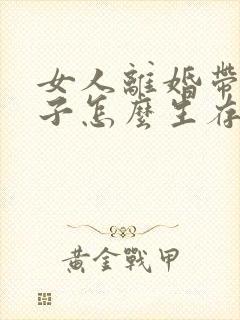 女人離婚帶
子怎麼生存
黃金戰甲